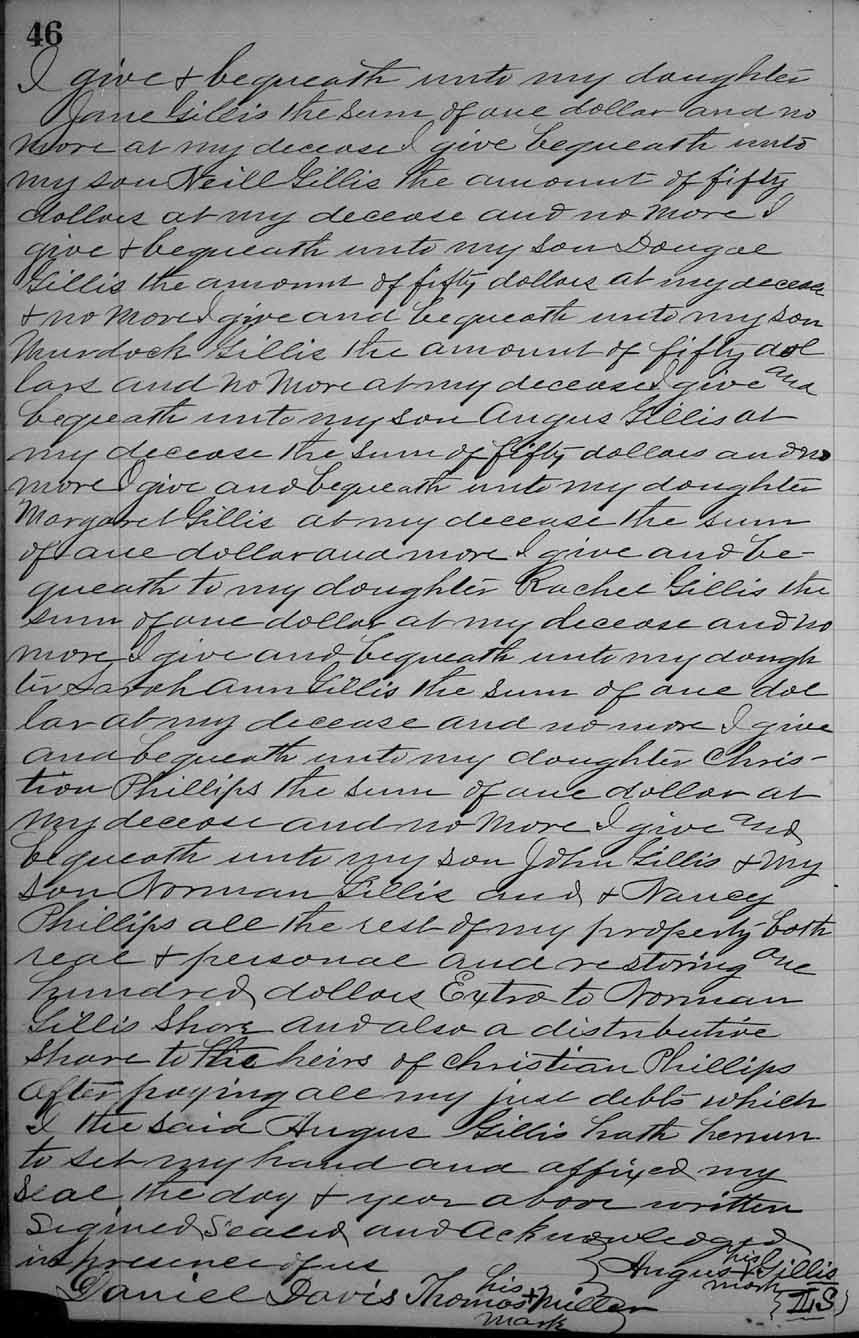 46
I give + bequeath unto my daughter
Jane Gillis the sum of one dollar and no
more at my decease I give bequeath unto
my son Neill Gillis the amount of fifty
dollars at my decease and no more I
give + bequeath unto my son Dougal
Gillis the amount of fifty dollars at my decease
+ no more I give and bequeath unto my son
Murdock Gillis the amount of fifty dol
lars and no more at my decease I give and
bequeath unto my son Angus Gillis at
my decease the sum of fifty dollars and no
more I give and bequeath unto my daughter
Margaret Gillis at my decease the sum
of one dollar and more I give and be-
queath to my daughter Rachel Gillis the
sum of one dollar at my decease and no
more I give and bequeath unto my daugh
ter Sarah Ann Gillis the sum of one dol
lar at my decease and no more I give
and bequeath unto my daughter Chris-
tian Phillips the sum of one dollar at
my decease and no more I give and
bequeath unto my son John Gillis + my
son Norman Gillis and + Nancy
Phillips all the rest of my property both
real + personal and restoring one
hundred dollars Extra to Norman
Gillis Share and also a distributive
Share to the heirs of Christian Phillips
After paying all my just debts which
I the said Angus Gillis hath herun
to set my hand and affixed my
seal the day + year above written
Signed Sealed and Acknowledged
in presence of us
Angus his + mark Gillis
Daniel Davis Thomas his + mark Miller
{LS}